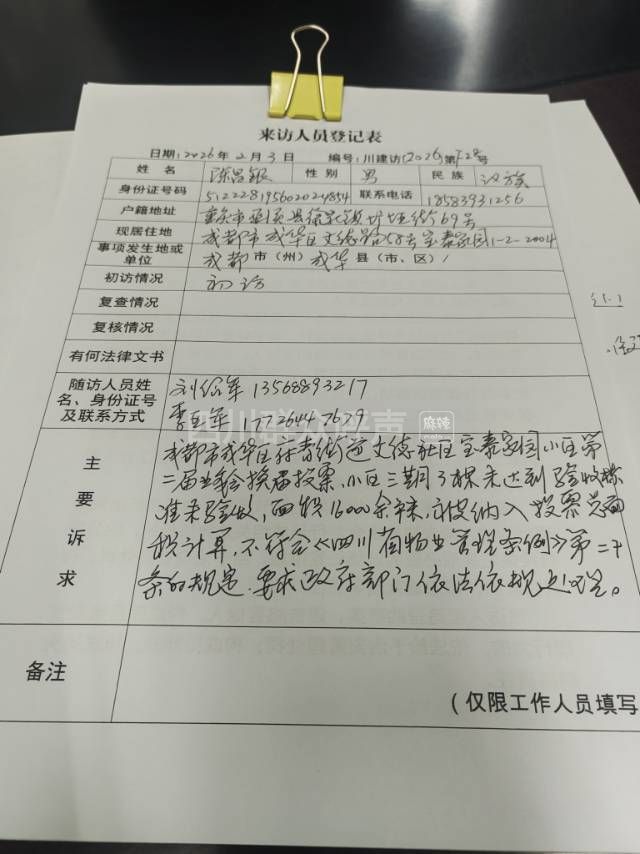 来访人员登记表
日期:2026年2月3日 编号:川建访(2026)第 号
姓名 陈昌银 性别 男 民族 汉族
身份证号码 512228195602024854 联系电话 18583931256
户籍地址 重庆市 县 镇 街69号
现居住地 成都市成华区文德路 号宝泰家园1-2-2004
事项发生地或单位 成都市(州)成华县(市、区)/
初访情况 初访
复查情况
复核情况
有何法律文书
随访人员姓名、身份证号及联系方式
刘绍军 13568893217
李 军 17726447679
四川群众呼声 麻辣
主要诉求
成都市成华区府青街道文德社区宝泰家园小区第
二届业委会换届投票,小区三期3栋未达到验收标
准未验收,面积16000余平米,被纳入投票总面
积计算,不符合《四川省物业管理条例》第二十
条的规定,要求政府部门依法依规处理。
备注
(仅限工作人员填写